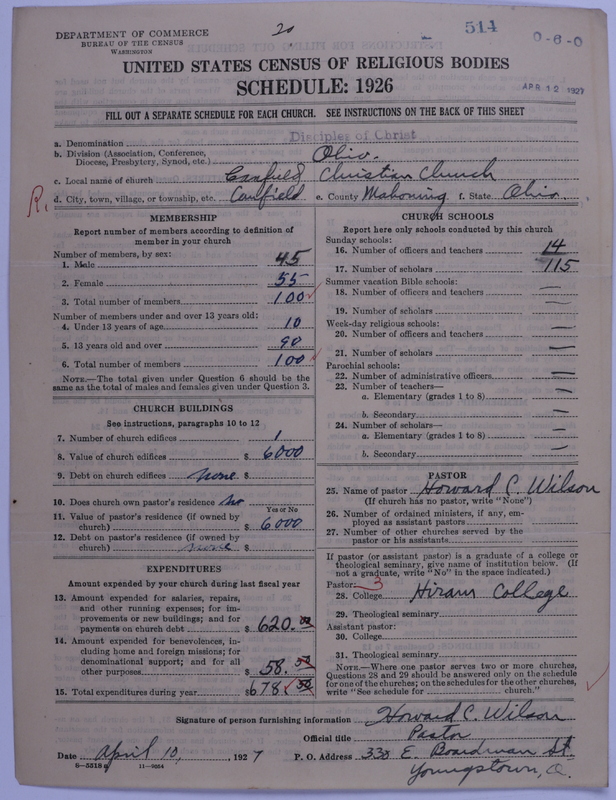 DEPARTMENT OF COMMERCE
BUREAU OF THE CENSUS
WASHINGTON
20
514
0-6-0
UNITED STATES CENSUS OF RELIGIOUS BODIES
SCHEDULE: 1926
APR 12 1927
FILL OUT A SEPARATE SCHEDULE FOR EACH CHURCH. SEE INSTRUCTIONS ON THE BACK OF THIS SHEET
a. Denomination Disciples of Christ
b. Division (Association, Conference,
Diocese, Presbytery, Synod, etc.) Ohio.
c. Local name of church Canfield Christian Church
R. d. City, town, village, or township, etc. Canfield e. County Mahoning f. State Ohio.
MEMBERSHIP
Report number of members according to definition of
member in your church
Number of members, by sex:
1. Male 45
2. Female 55
3. Total number of members 100
Number of members under and over 13 years old:
4. Under 13 years of age 10
5. 13 years old and over 90
6. Total number of members 100
NOTE.—The total given under Question 6 should be the
same as the total of males and females given under Question 3.
CHURCH BUILDINGS
See instructions, paragraphs 10 to 12
7. Number of church edifices 1
8. Value of church edifices $ 6000
9. Debt on church edifices none. $
10. Does church own pastor's residence no
Yes or No
11. Value of pastor's residence (if owned by
church) $ 6000
12. Debt on pastor's residence (if owned by
church) none $
EXPENDITURES
Amount expended by your church during last fiscal year
13. Amount expended for salaries, repairs,
and other running expenses; for im-
provements or new buildings; and for
payments on church debt $ 620.00
14. Amount expended for benevolences, in-
cluding home and foreign missions; for
denominational support; and for all
other purposes $ 58.50
15. Total expenditures during year $ 678.50
CHURCH SCHOOLS
Report here only schools conducted by this church
Sunday schools:
16. Number of officers and teachers 14
17. Number of scholars 115
Summer vacation Bible schools:
18. Number of officers and teachers —
19. Number of scholars —
Week-day religious schools:
20. Number of officers and teachers —
21. Number of scholars —
Parochial schools:
22. Number of administrative officers —
23. Number of teachers—
a. Elementary (grades 1 to 8) —
b. Secondary —
24. Number of scholars—
a. Elementary (grades 1 to 8) —
b. Secondary —
PASTOR
25. Name of pastor Howard C. Wilson
(If church has no pastor, write "None")
26. Number of ordained ministers, if any, em-
ployed as assistant pastors
27. Number of other churches served by the
pastor or his assistants
If pastor (or assistant pastor) is a graduate of a college or
theological seminary, give name of institution below. (If
not a graduate, write "No" in the space indicated.)
Pastor: 3
28. College Hiram College
29. Theological seminary
Assistant pastor:
30. College
31. Theological seminary
NOTE.—Where one pastor serves two or more churches,
Questions 28 and 29 should be answered only on the schedule
for one of the churches; on the schedules for the other churches,
write "See schedule for church."
Signature of person furnishing information Howard C. Wilson
Official title Pastor
Date April 10, 1927 P. O. Address 338 E. Boardman St.
8—5318 a 11—9554 Youngstown, O.